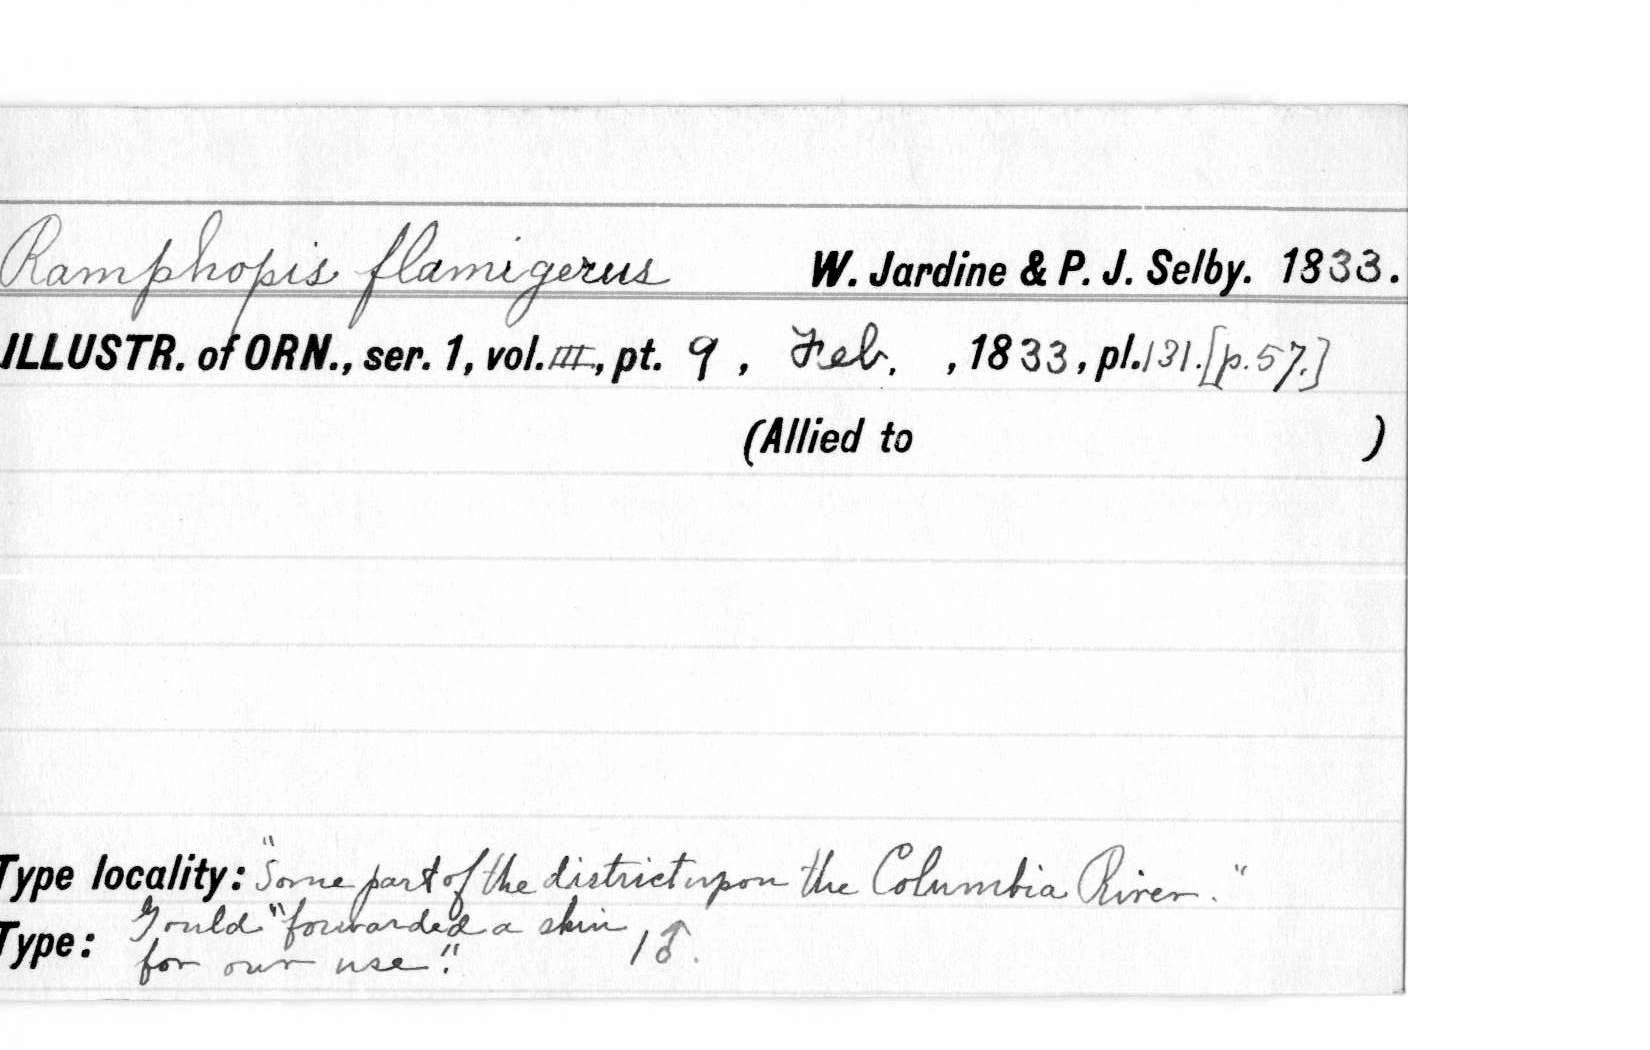 Ramphopis flamigerus W. Jardine & P. J. Selby. 1833.
ILLUSTR. of ORN., ser. 1, vol. III, pt. 9, Feb. , 1833, pl. 131. [p. 57.]
(Allied to )
Type locality: "Some part of the district upon the Columbia River."
Gould "forwarded a skin
Type: for our use". 1♂.